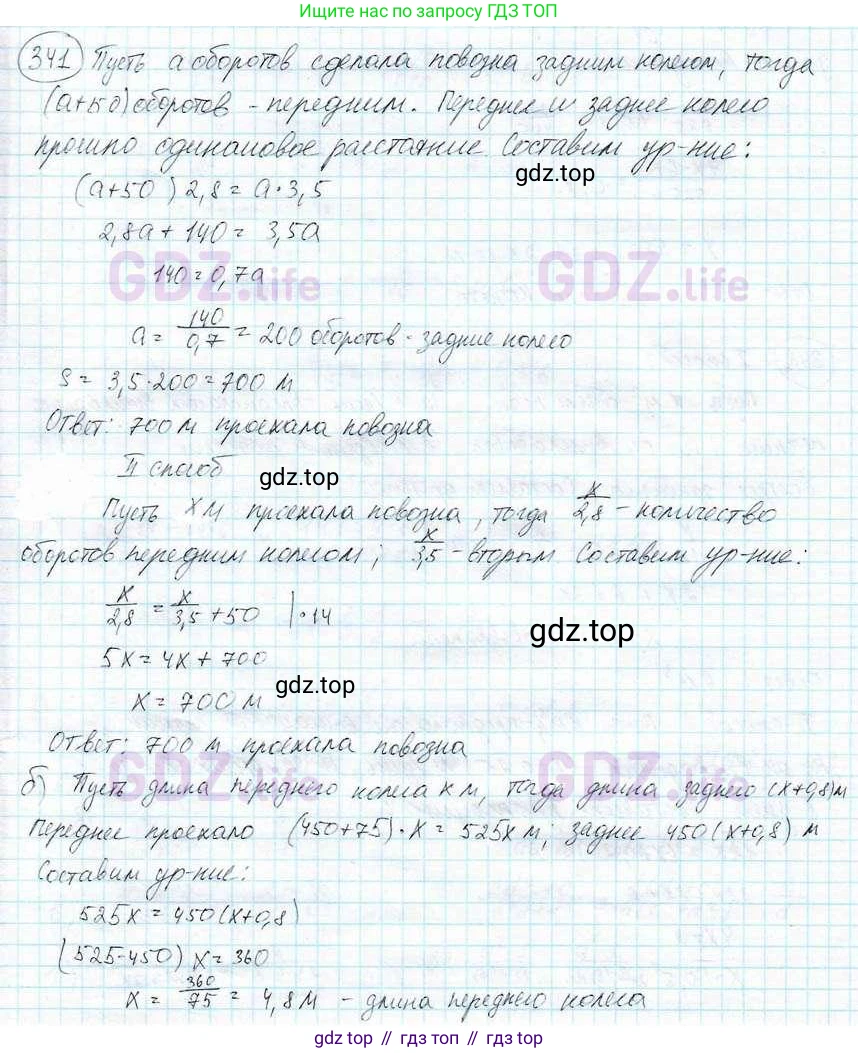 Ищите нас по запросу ГДЗ ТОП
341 Пусть а оборотов сделала повозка задним колесом, тогда
(а+50) оборотов - передним. Переднее и заднее колесо
прошло одинаковое расстояние. Составим ур-ние:
gdz.top
(а+50) 2,8 = а·3,5
2,8а + 140 = 3,5а
GDZ.life GDZ.life
140 = 0,7а
а = 140/0,7 = 200 оборотов - задние колесо
S = 3,5·200 = 700 м
Ответ: 700 м проехала повозка
II способ
gdz.top
Пусть х м проехала повозка, тогда х/2,8 - количество
оборотов передним колесом; х/3,5 - вторым Составим ур-ние:
х/2,8 = х/3,5 + 50 |·14
gdz.top
5х = 4х + 700
gdz.top
х = 700 м
Ответ: 700 м проехала повозка
GDZ.life GDZ.life
б) Пусть длина переднего колеса х м, тогда длина заднего (х+0,8) м
Переднее проехало (450+75)·х = 525х м; заднее 450(х+0,8) м
Составим ур-ние:
525х = 450(х+0,8)
(525-450) х = 360
х = 360/75 = 4,8 м - длина переднего колеса
gdz.top // гдз топ // гдз.топ